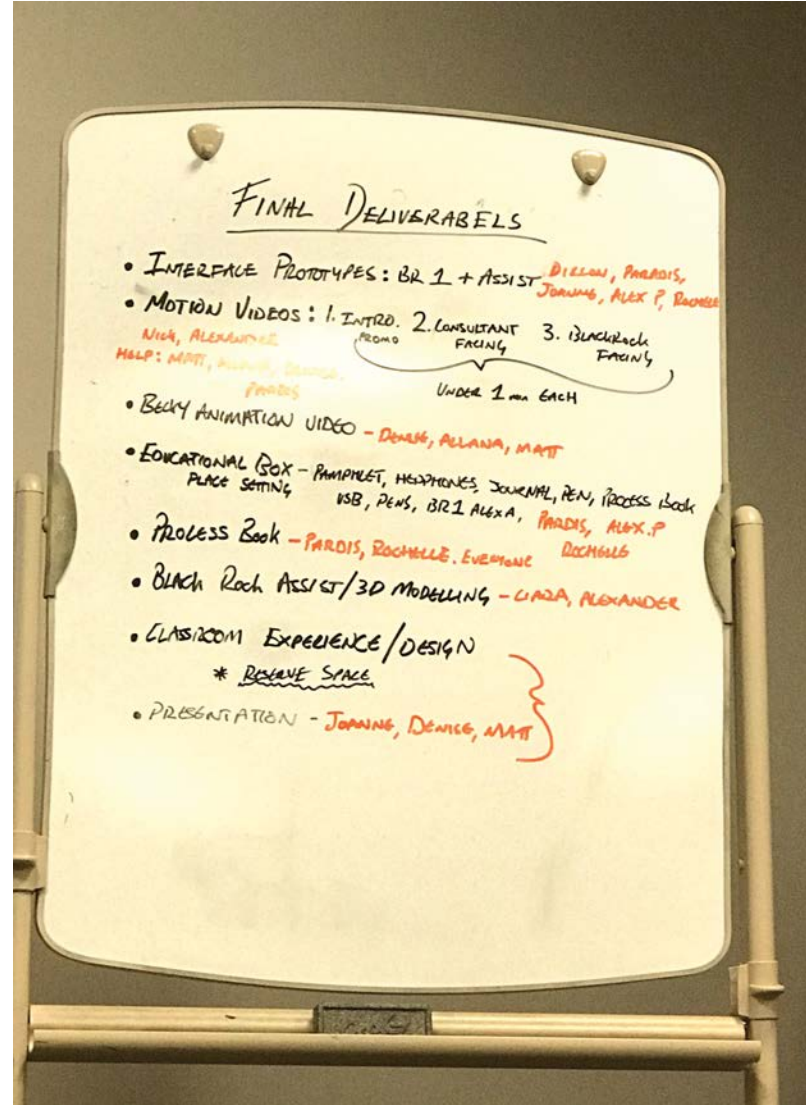 FINAL DELIVERABELS
• INTERFACE PROTOTYPES: BR 1 + ASSIST DILLON, PARDIS,
JOANNE, ALEX P, ROCHELLE
• MOTION VIDEOS: 1. INTRO. 2. CONSULTANT 3. BLACKROCK
PROMO FACING FACING
NICK, ALEXANDER
HELP: MATT, ALLANA, DENICE,
PARDIS
UNDER 1 min EACH
• BECKY ANIMATION VIDEO - DENISE, ALLANA, MATT
• EDUCATIONAL BOX - PAMPHLET, HEADPHONES, JOURNAL, PEN, PROCESS BOOK
PLACE SETTING USB, PENS, BR1 ALEXA, PARDIS, ALEX.P
ROCHELLE
• PROCESS BOOK - PARDIS, ROCHELLE. EVERYONE
• BLACK ROCK ASSIST/3D MODELLING - ALEXANDER
• CLASSROOM EXPERIENCE/DESIGN
* RESERVE SPACE
• PRESENTATION - JOANNE, DENICE, MATT